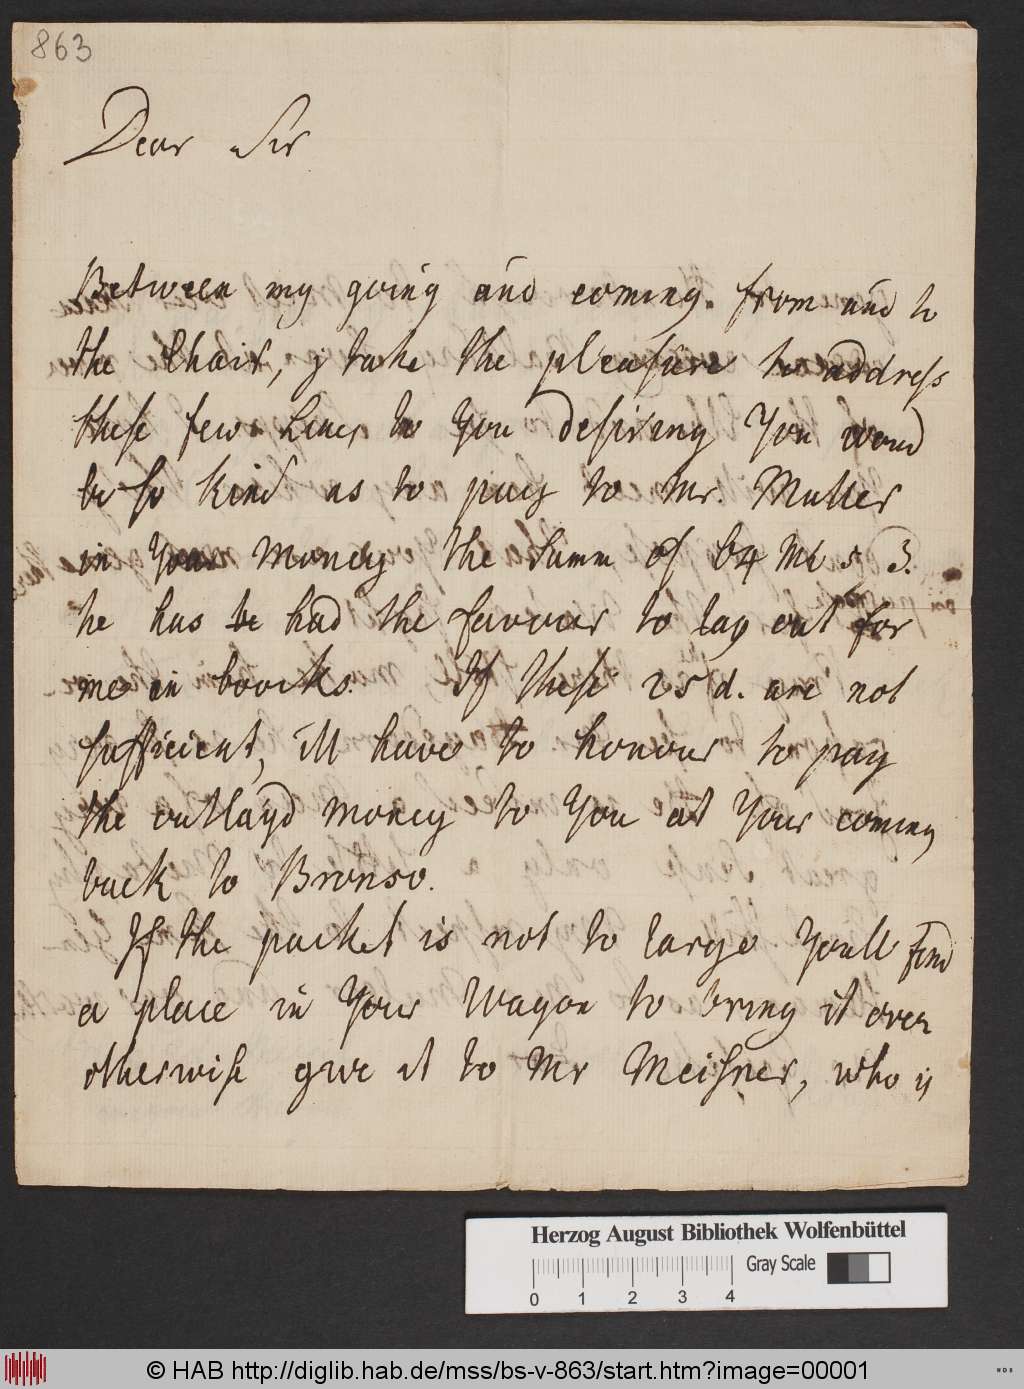 863
Dear Sir
Between my going and coming from and to
the Chair, j take the pleasure to address
these few Lines to You desiring You woud
be so kind as to pay to Mr. Muller
in Your Money the Summ of 64 Mk 5 3.
he has be had the favour to lay out for
me in boocks. If these 25 d. are not
sufficient, ill have to honour to pay
the outlayd money to You at Your coming
back to Bronso.
If the packet is not to large Youll find
a place in Your Wagon to bring it over
otherwise give it to Mr Meisner, who is
Herzog August Bibliothek Wolfenbüttel
Gray Scale
0 1 2 3 4
© HAB http://diglib.hab.de/mss/bs-v-863/start.htm?image=00001